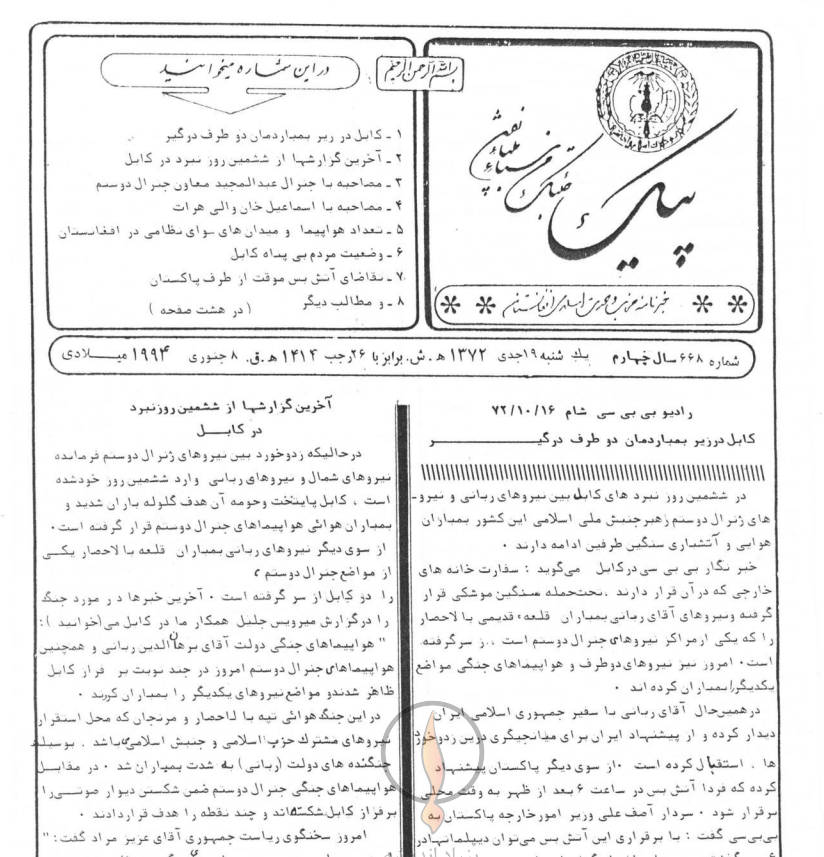 بسم الله الرحمن الرحیم
پیک
خبرنامه حزب وحدت اسلامی افغانستان
در این شماره میخوانید
۱ ـ کابل در زیر بمباردمان دو طرف درگیر
۲ ـ آخرین گزارشها از ششمین روز نبرد در کابل
۳ ـ مصاحبه با جنرال عبدالمجید معاون جنرال دوستم
۴ ـ مصاحبه با اسماعیل خان والی هرات
۵ ـ تعداد هواپیما و میدان های هوای نظامی در افغانستان
۶ ـ وضعیت مردم بی پناه کابل
۷ ـ تقاضای آتش بس موقت از طرف پاکستان
۸ ـ و مطالب دیگر ( در هشت صفحه )
شماره ۶۶۸ سال چهارم یک شنبه ۱۹جدی ۱۳۷۲ ه.ش. برابر با ۲۶رجب ۱۴۱۴ ه.ق. ۸ جنوری ۱۹۹۴ میـــلادی
رادیو بی بی سی شام ۷۲/۱۰/۱۶
کابل درزیر بمباردمان دو طرف درگیـــــــر
در ششمین روز نبرد های کابل بین نیروهای ربانی و نیرو-
های ژنرال دوستم رهبر جنبش ملی اسلامی این کشور بمباران
هوایی و آتشباری سنگین طرفین ادامه دارند ۰
خبر نگار بی بی سی درکابل میگوید : سفارت خانه های
خارجی که در آن قرار دارند ،تحت حمله سنگین موشکی قرار
گرفته ونیروهای آقای ربانی بمباران قلعه قدیمی بالاحصار
را که یکی ازمراکز نیروهای جنرال دوستم است ،از سرگرفته
است۰ امروز نیز نیروهای دوطرف و هواپیماهای جنگی مواضع
یکدیگررا بمباران کرده اند ۰
درهمین حال آقای ربانی با سفیر جمهوری اسلامی ایران
دیدار کرده و از پیشنهاد ایران برای میانجیگری درین زدوخورد
ها ، استقبال کرده است ۰از سوی دیگر پاکستان پیشنهاد
کرده که فردا آتش بس در ساعت ۶ بعد از ظهر به وقت محلی
برقرار شود ۰ سردار آصف علی وزیر امورخارجه پاکستان به
بی بی سی گفت : با برقراری این آتش بس می توان دیپلماتها در
آخرین گزارشها از ششمین روزنبرد
در کابـــل
درحالیکه زدوخورد بین نیروهای ژنرال دوستم فرمانده
نیروهای شمال و نیروهای ربانی وارد ششمین روز خودشده
است ، کابل پایتخت وحومه آن هدف گلوله باران شدید و
بمباران هوائی هواپیماهای جنرال دوستم قرار گرفته است۰
از سوی دیگر نیروهای ربانی بمباران قلعه بالاحصار یکــی
از مواضع جنرال دوستم ،
را دو کابل از سر گرفته است ۰ آخرین خبرها در مورد جنگ
را درگزارش میرویس جلیل همکار ما در کابل می(خوانید ):
" هواپیماهای جنگی دولت آقای برهان الدین ربانی و همچنین
هواپیماهای جنرال دوستم امروز در چند نوبت بر فراز کابل
ظاهر شدندو مواضع نیروهای یکدیگر را بمباران کردند ۰
دراین جنگ هوائی تپه بالاحصار و مرنجان که محل استقرار
نیروهای مشترک حزب اسلامی و جنبش اسلامی می باشد . بوسیله
جنگنده های دولت (ربانی) به شدت بمباران شد ۰ در مقابـــل
هواپیماهای جنگی جنرال دوستم ضمن شکستن دیوار صوتــی را
برفراز کابل شکسته اند و چند نقطه را هدف قراردادند ۰
امروز سخنگوی ریاست جمهوری آقای عزیز مراد گفت: "